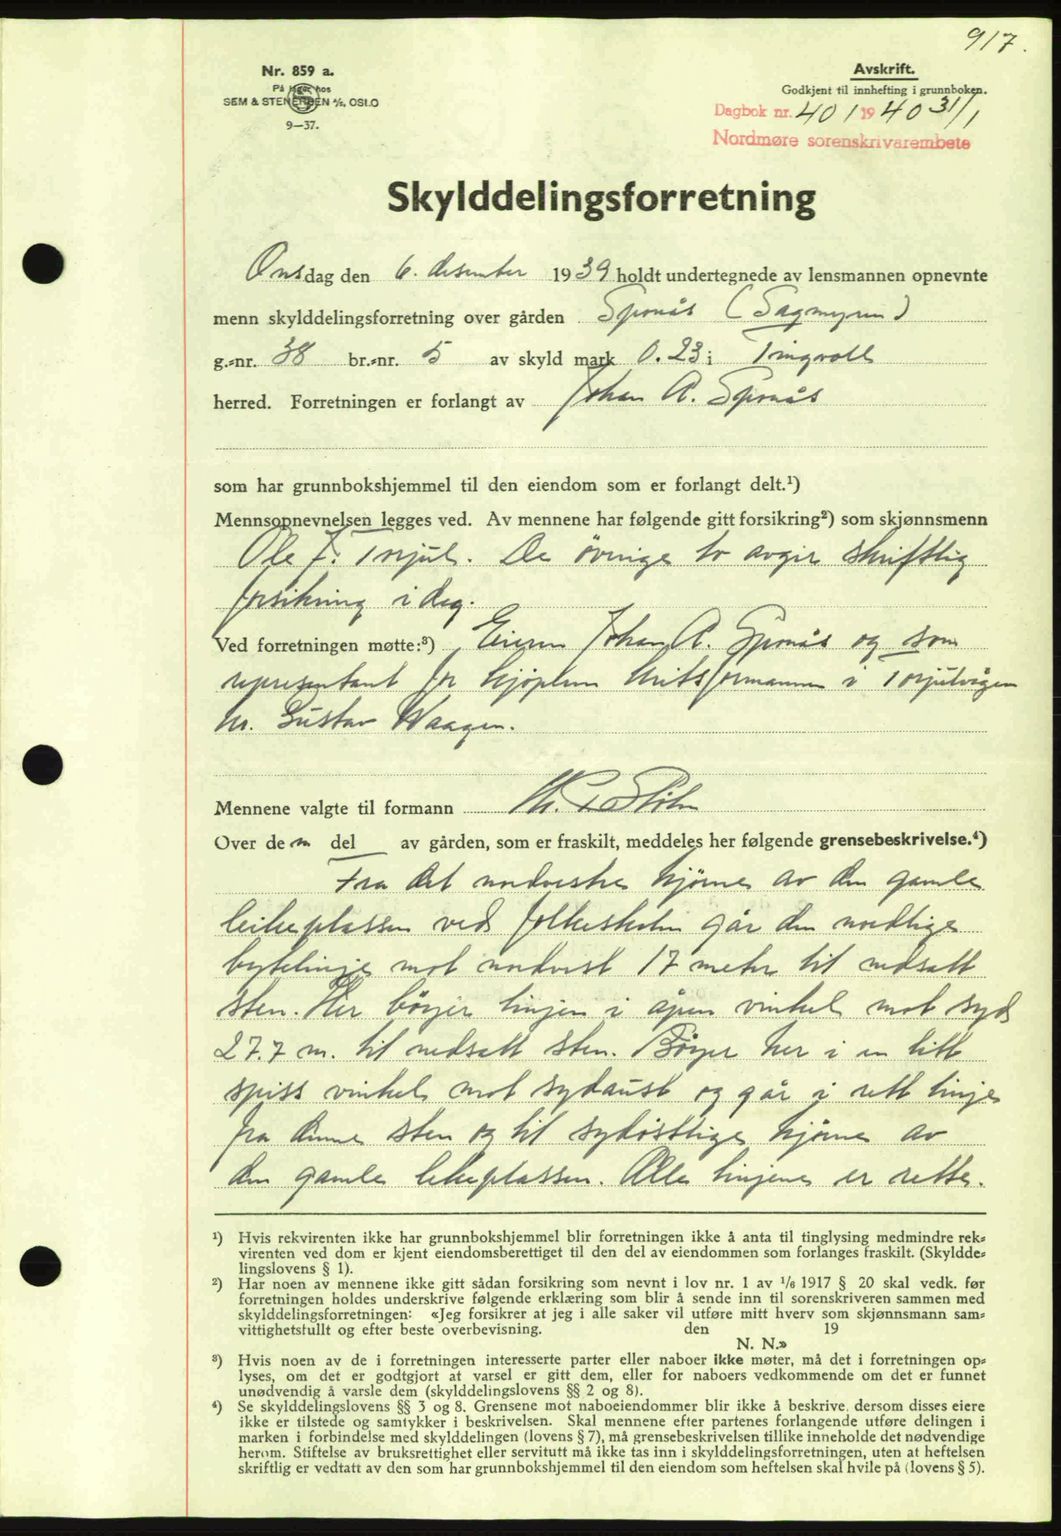 917.
Nr. 859 a.
På lager hos
SEM & STENERSEN A/S, OSLO
9—37.
Avskrift.
Godkjent til innhefting i grunnboken.
Dagbok nr. 401 1940 31/1
Nordmøre sorenskrivarembete
Skylddelingsforretning
Onsdag den 6. desember 1939 holdt undertegnede av lensmannen opnevnte
menn skylddelingsforretning over gården Sponås (Sagmyren)
g.-nr. 38 br.-nr. 5 av skyld mark 0.23 i Tingvoll
herred. Forretningen er forlangt av Johan A. Sponås
som har grunnbokshjemmel til den eiendom som er forlangt delt.¹)
Mennsopnevnelsen legges ved. Av mennene har følgende gitt forsikring²) som skjønnsmenn
Ole J. Torjul. De övrige to avgir skriftlig
forsikning i dag.
Ved forretningen møtte:³) Eieren Johan A. Sponås og som
representant for kjöperen kretsformannen i Torjulvågen
hr. Gustav Waagen.
Mennene valgte til formann
Over den del av gården, som er fraskilt, meddeles her følgende grensebeskrivelse.⁴)
Fra det nordvestre hjörne av den gamle
leikeplassen ved folkeskolen går den nordlige
bytelinje mot nordvest 17 meter til nedsatt
sten. Her böyer linjen i åpen vinkel mot syd
27.7 m. til nedsatt sten. Böyer her i en litt
spiss vinkel mot sydaust og går i rett linje
fra denne sten og til sydöstlige hjörne av
den gamle lekeplassen. Alle linjene er rette.
¹) Hvis rekvirenten ikke har grunnbokshjemmel blir forretningen ikke å anta til tinglysing medmindre rek-
virenten ved dom er kjent eiendomsberettiget til den del av eiendommen som forlanges fraskilt. (Skyldde-
lingslovens § 1).
²) Har noen av mennene ikke gitt sådan forsikring som nevnt i lov nr. 1 av 1/6 1917 § 20 skal vedk. før
forretningen holdes underskrive følgende erklæring som blir å sende inn til sorenskriveren sammen med
skylddelingsforretningen: «Jeg forsikrer at jeg i alle saker vil utføre mitt hverv som skjønnsmann sam-
vittighetsfullt og efter beste overbevisning. den 19
N. N.»
³) Hvis noen av de i forretningen interesserte parter eller naboer ikke møter, må det i forretningen op-
lyses, om det er godtgjort at varsel er gitt dem, eller for naboers vedkommende om det er funnet
unødvendig å varsle dem (skylddelingslovens §§ 2 og 8).
⁴) Se skylddelingslovens §§ 3 og 8. Grensene mot naboeiendommer blir ikke å beskrive, dersom disses eiere
ikke er tilstede og samtykker i beskrivelsen. Skal mennene efter partenes forlangende utføre delingen i
marken i forbindelse med skylddelingen (lovens § 7), må grensebeskrivelsen tillike inneholde det nødvendige
herom. Stiftelse av bruksrettighet eller servitutt må ikke tas inn i skylddelingsforretningen, uten at heftelsen
skriftlig er vedtatt av den som har grunnbokshjemmel til den eiendom som heftelsen skal hvile på (lovens § 5).